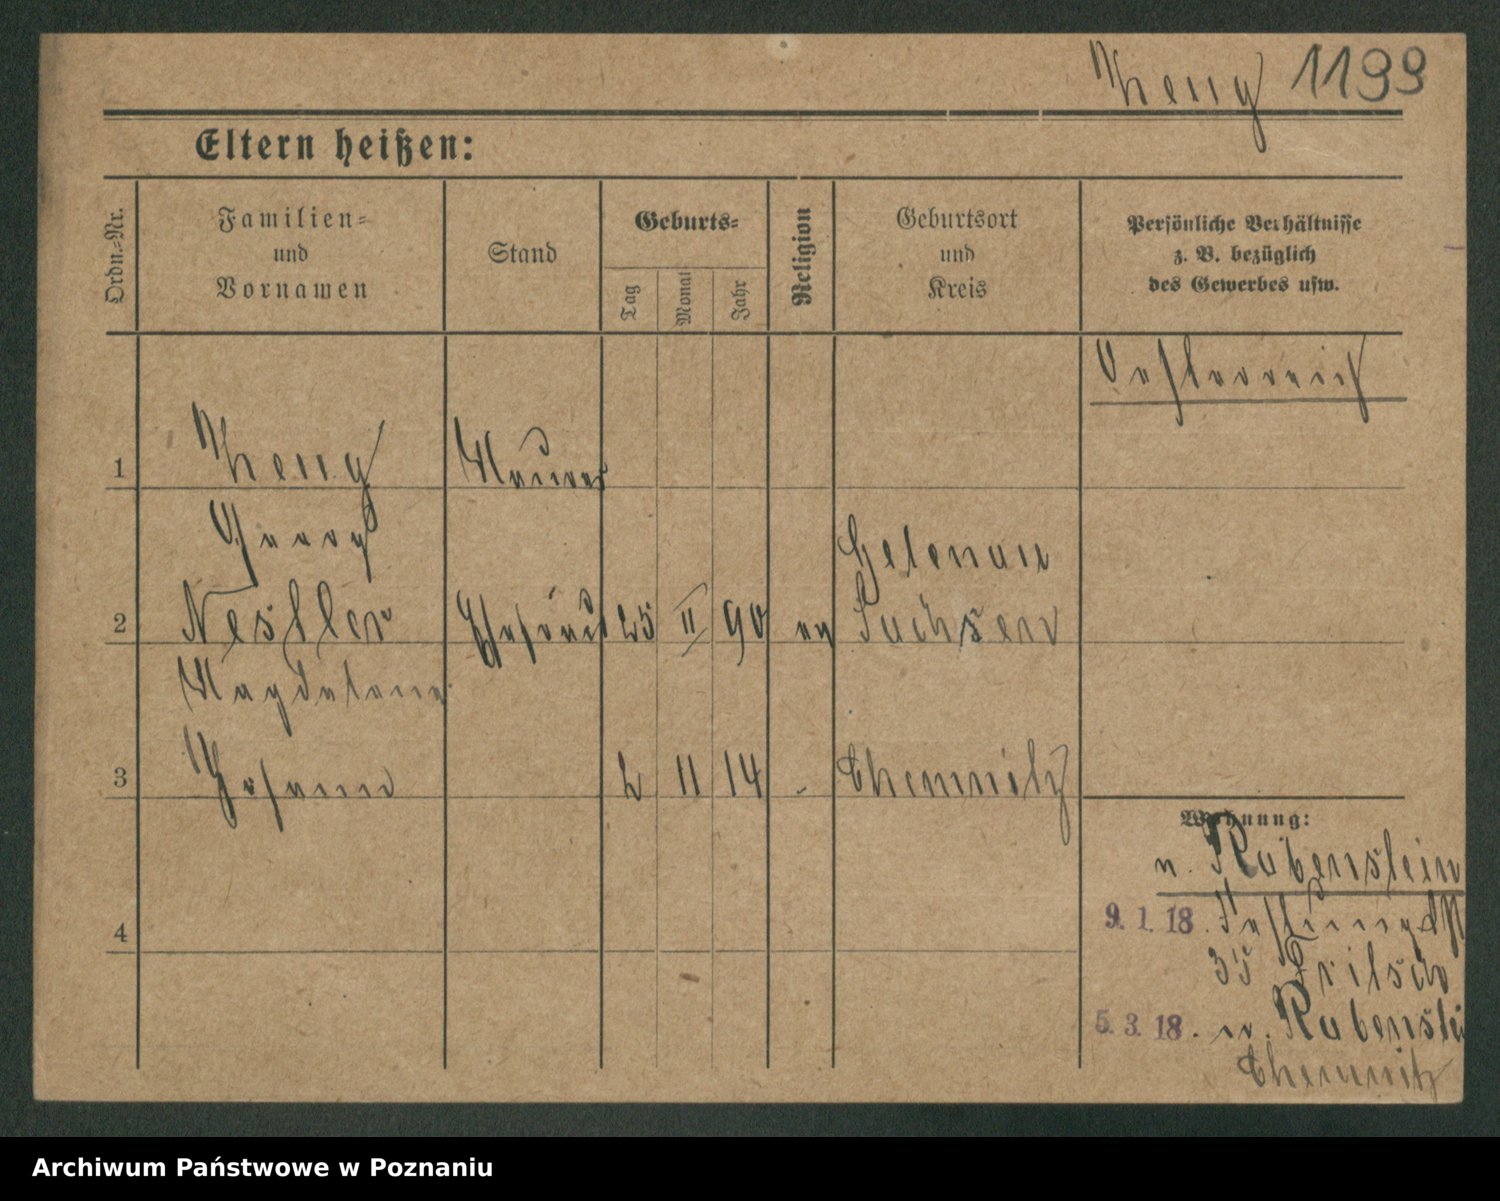 Theng 1199
Eltern heißen:
Ordn.-Nr.
Familien-
und
Vornamen
Stand
Geburts-
Tag
Monat
Jahr
Religion
Geburtsort
und
Kreis
Persönliche Verhältnisse
z. B. bezüglich
des Gewerbes usw.
Oesterreich
1 Theng Maurer
Georg
Gelenau
2 Nestler Ehefrau 25 II 90 ev Sachsen
Magdalena
3 Johann 2 11 14 - Chemnitz
Wohnung:
n. Rabenstein
4
9. 1. 18.
35 Fritsch
5. 3. 18. n. Rabenstei
Chemnitz
Archiwum Państwowe w Poznaniu